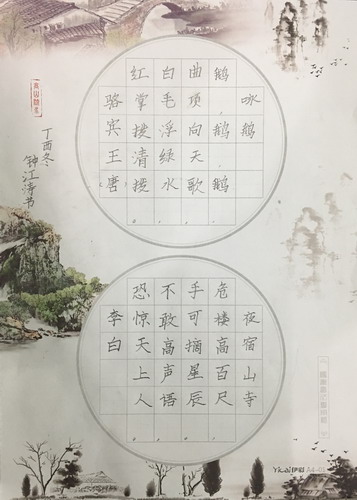 咏鹅
鹅，鹅，鹅，
曲项向天歌，
白毛浮绿水，
红掌拨清拨。
骆宾王唐
夜宿山寺
危楼高百尺，
手可摘星辰。
不敢高声语，
恐惊天上人。
李白
丁酉冬